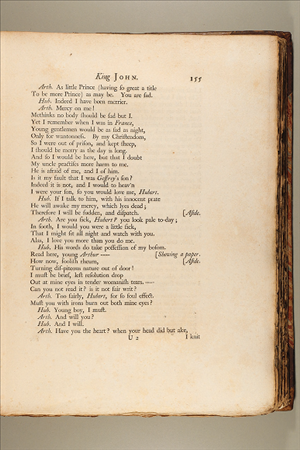 King JOHN. 155
Arth. As little Prince (having so great a title
To be more Prince) as may be. You are sad.
Hub. Indeed I have been merrier.
Arth. Mercy on me!
Methinks no body should be sad but I.
Yet I remember when I was in France,
Young gentlemen would be as sad as night,
Only for wantonness. By my Christendom,
So I were out of prison, and kept sheep,
I should be merry as the day is long.
And so I would be here, but that I doubt
My uncle practises more harm to me.
He is afraid of me, and I of him.
Is it my fault that I was Geffrey's son?
Indeed it is not, and I would to heav'n
I were your son, so you would love me, Hubert.
Hub. If I talk to him, with his innocent prate
He will awake my mercy, which lyes dead;
Therefore I will be sudden, and dispatch. [Aside.
Arth. Are you sick, Hubert? you look pale to-day;
In sooth, I would you were a little sick,
That I might sit all night and watch with you.
Alas, I love you more than you do me.
Hub. His words do take possession of my bosom.
Read here, young Arthur— [Shewing a paper.
How now, foolish rheum, [Aside.
Turning dis-piteous nature out of door!
I must be brief, lest resolution drop
Out at mine eyes in tender womanish tears.—
Can you not read it? is it not fair writ?
Arth. Too fairly, Hubert, for so foul effect.
Must you with irons burn out both mine eyes?
Hub. Young boy, I must.
Arth. And will you?
Hub. And I will.
Arth. Have you the heart? when your head did but ake,
U 2 I knit